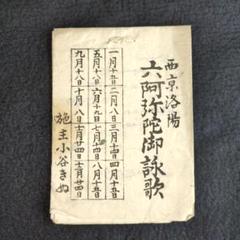 西京洛陽
六阿弥陀御詠歌
一月十五日 二月八日 三月十四日 四月十五日
五月十八日 六月十九日 七月十四日 八月十五日
九月十八日 十月八日 十一月廿四日 十二月廿四日
施主小谷きぬ